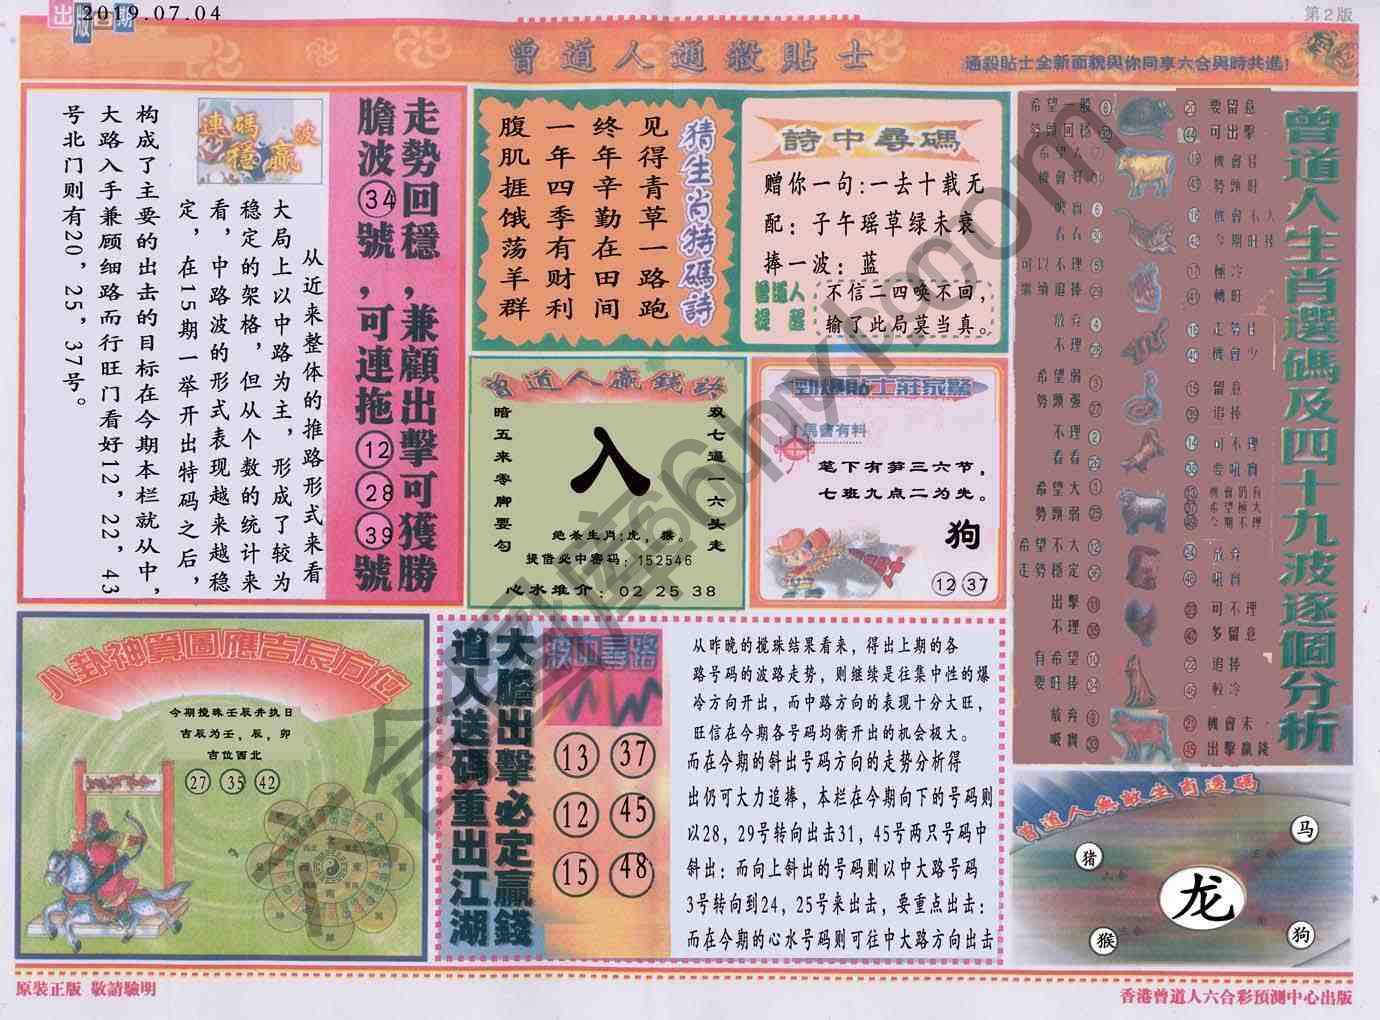 出版日期
2019.07.04
第2版
曾道人通殺貼士
通殺貼士全新面貌與你同享六合與時共進!
走勢回穩,兼顧出擊可獲勝
膽波㉞號,可連拖⑫㉘㊴號
連碼 波
穩贏
从近来整体的推路形式来看
大局上以中路为主,形成了较为
稳定的架格,但从个数的统计来
看,中路波的形式表现越来越稳
定,在15期一举开出特码之后,
构成了主要的出击的目标在今期本栏就从中,
大路入手兼顾细路而行旺门看好12,22,43
号北门则有20,25,37号。
猜生肖特碼詩
见得青草一路跑
终年辛勤在田间
一年四季有财利
腹肌捱饿荡羊群
詩中尋碼
赠你一句:一去十载无
配:子午瑶草绿未衰
捧一波:蓝
曾道人
提醒
不信二四唤不回,
输了此局莫当真。
曾道人贏錢路
双七逼一六头走
暗五来零脚要勾
入
绝杀生肖:虎,猴。
提借必中密码:152546
心水堆介:02 25 38
勁爆貼士莊家驚
馬會有料
笔下有笋三六节,
七班九点二为先。
狗
⑫㊲
曾道人生肖選碼及四十九波逐個分析
希望一般
要留意
勢頭回穩
可出擊
機會好
勢頭旺
看看
今期旺捧
可以不理
極冷
繼續追捧
轉旺
放弃
走勢佳
不理
機會少
希望弱
留意
勢頭强
追捧
不理
可不理
看看
要吼實
希望大
機會仍有
希望極大
勢頭弱
今期不理
希望不大
放弃
走勢穩定
吼實
出擊
可不理
不理
多留意
有希望
追捧
要旺捧
較冷
放弃
機會未
吸實
出擊贏錢
八卦神算圖應吉辰方位
今期搅珠壬辰并执日
吉辰为壬,辰,卯
吉位西北
㉗ ㉟ ㊷
大膽出擊必定贏錢
道人送碼重出江湖
波如尋路
13 37
12 45
15 48
从昨晚的搅珠结果看来,得出上期的各
路号码的波路走势,则继续是往集中性的爆
冷方向开出,而中路方向的表现十分大旺,
旺信在今期各号码均衡开出的机会极大。
而在今期的斜出号码方向的走势分析得
出仍可大力追捧,本栏在今期向下的号码则
以28,29号转向出击31,45号两只号码中
斜出:而向上斜出的号码则以中大路号码
3号转向到24,25号来出击,要重点出击:
而在今期的心水号码则可往中大路方向出击
曾道人無敵生肖選碼
马
猪
龙
猴
狗
原裝正版 敬請驗明
香港曾道人六合彩預測中心出版